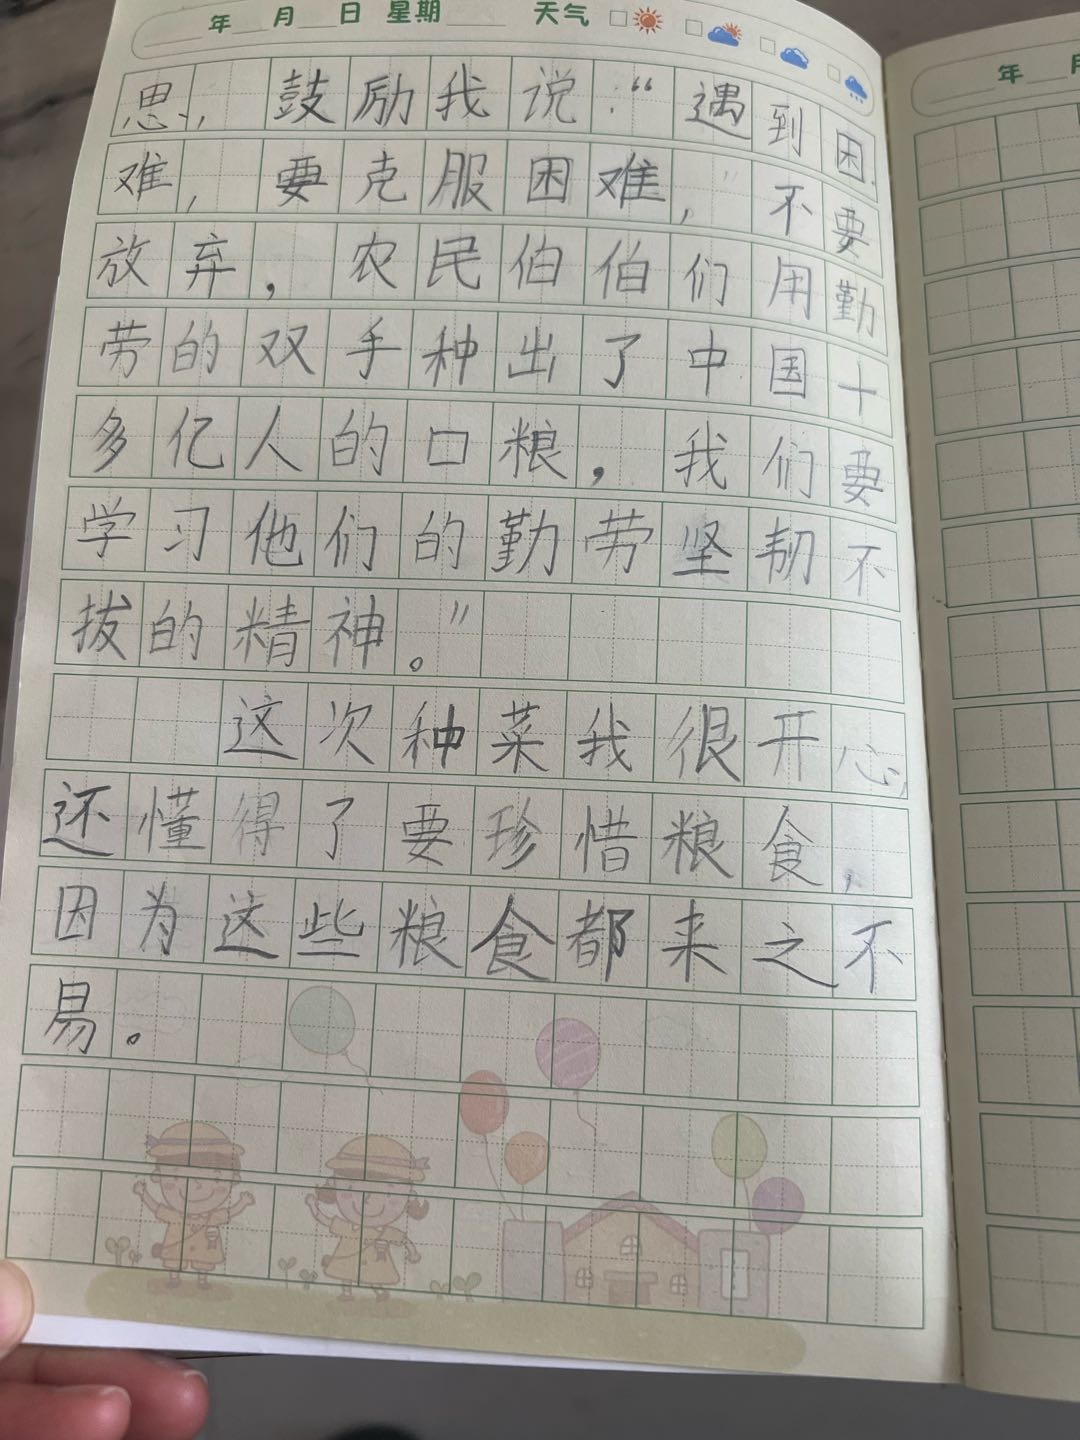 年 月 日 星期 天气
思，鼓励我说：“遇到困
难，要克服困难，不要
放弃，农民伯伯们用勤
劳的双手种出了中国十
多亿人的口粮，我们要
学习他们的勤劳坚韧不
拔的精神。”
这次种菜我很开心，
还懂得了要珍惜粮食，
因为这些粮食都来之不
易。
年 月